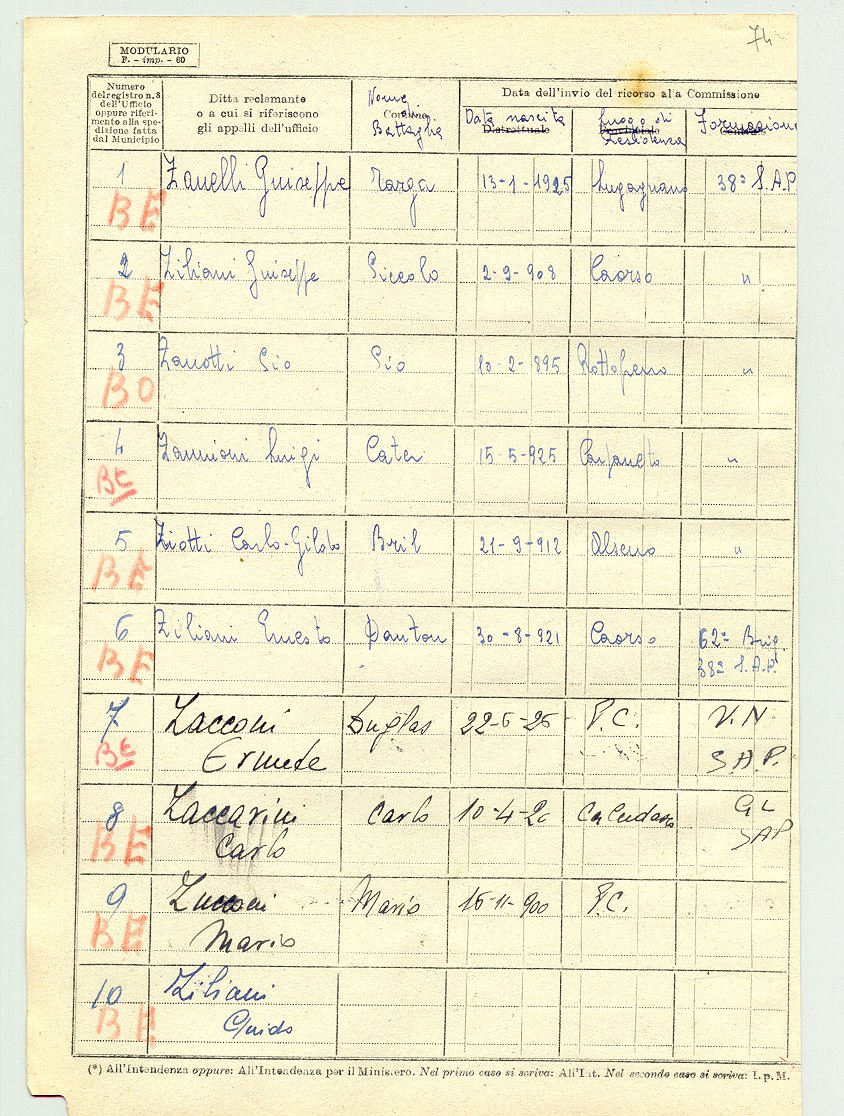 74
MODULARIO
F. - imp. - 60
Numero
del registro n. 8
dell'Ufficio
oppure riferi-
mento alla spe-
dizione fatta
dal Municipio
Ditta reclamante
o a cui si riferiscono
gli appelli dell'ufficio
Nome
di
Battaglia
Data dell'invio del ricorso alla Commissione
Data nascita
Distrettuale
Luogo di
Provinciale
Residenza
Formazione
1 Zanelli Guiseppe Targa 13-1-1925 Lugagnano 38ª S.A.P.
BE
2 Ziliani Guiseppe Piccolo 2-9-908 Caorso "
BE
3 Zanotti Pio Pio 10-2-895 Rottofreno "
BO
4 Zannoni Luigi Cater 15-5-925 Carpaneto "
BE
5 Ziotti Carlo-Gildo Bril 21-9-912 Alseno "
BE
6 Ziliani Ernesto Danton 30-8-921 Caorso 62ª Brig.
BE 38ª S.A.P.
7 Zacconi Duglas 22-6-26 P.C. V.N
BE Ermete S.A.P.
8 Zaccarini Carlo 10-4-20 GL
BE Carlo SAP
9 Zucconi Mario 16-11-900 P.C.
BE Mario
10 Ziliani
BE Guido
(*) All'Intendenza oppure: All'Intendenza per il Ministero. Nel primo caso si scriva: All'Int. Nel secondo caso si scriva: I. p. M.